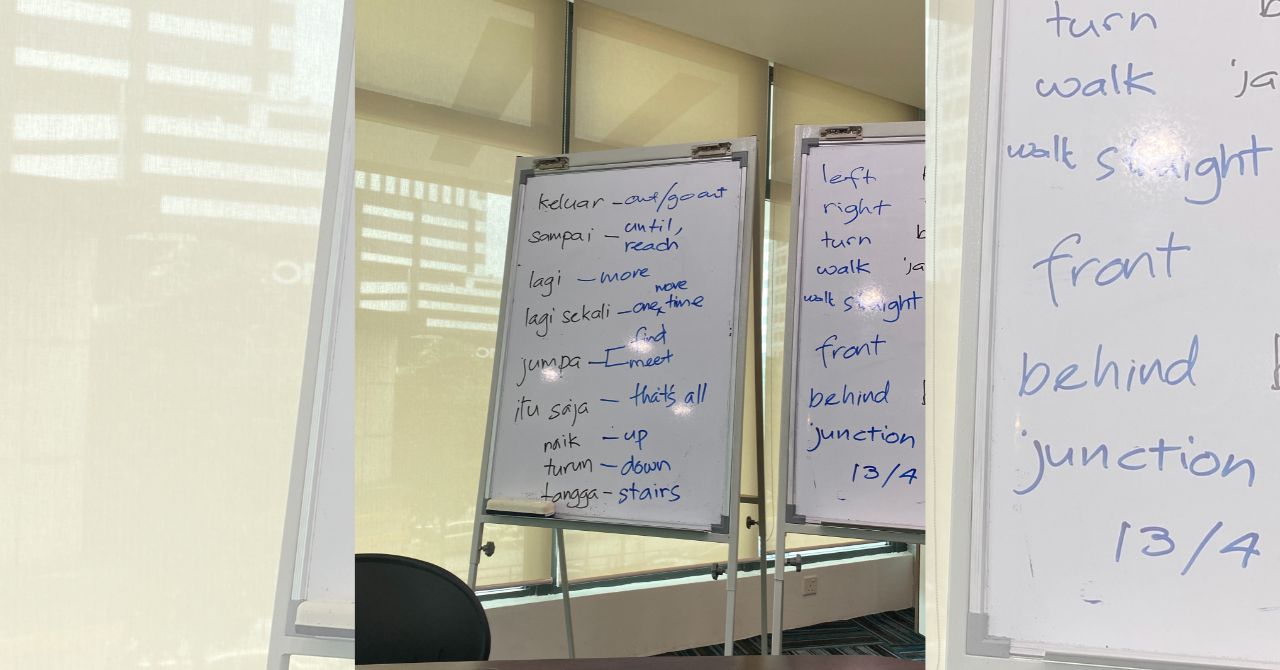 keluar - out/go out
sampai - until,
reach
lagi - more
lagi sekali - one x time
more
jumpa - find
meet
itu saja - that's all
naik - up
turun - down
tangga - stairs
left
right
turn
walk ja
walk straight
front
behind
junction
13/4
turn
walk ja
walk straight
front
behind
junction
13/4